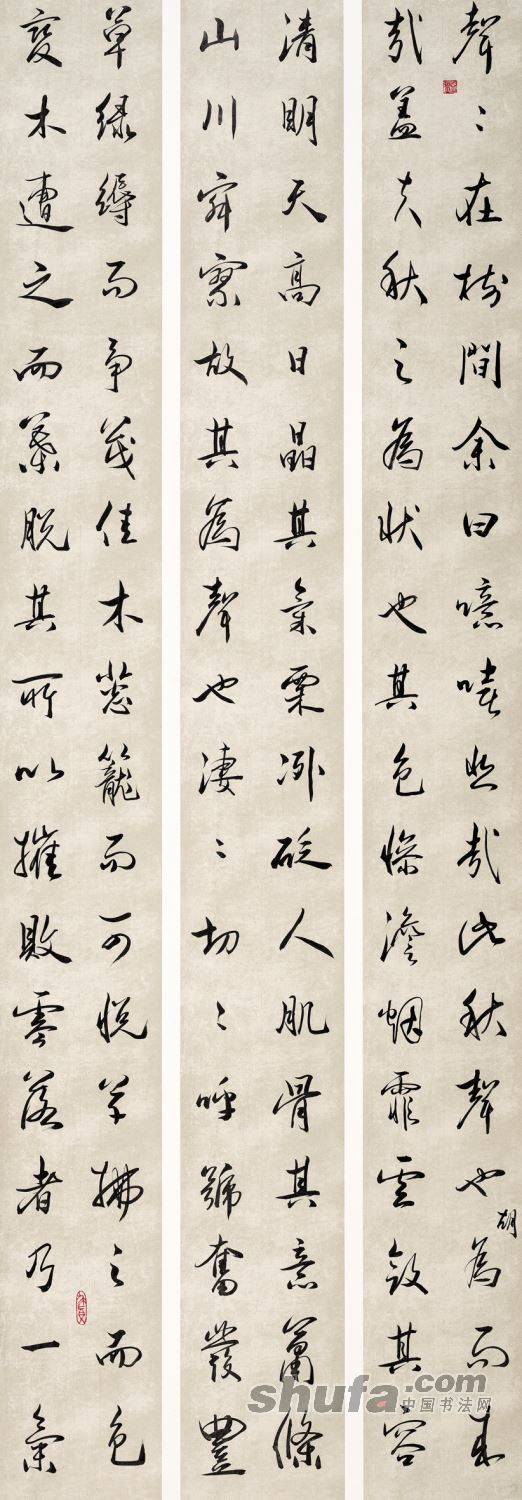 聲〻在樹間余曰噫嘻悲哉此秋聲也胡為而來
哉蓋夫秋之為狀也其色慘澹烟霏雲斂其容
清明天高日晶其氣栗冽砭人肌骨其意蕭條
山川寂寥故其為聲也凄〻切〻呼號奮發豐
草綠縟而爭茂佳木葱籠而可悅草拂之而色
變木遭之而葉脫其所以摧敗零落者乃一氣
shufa.com
中国书法网